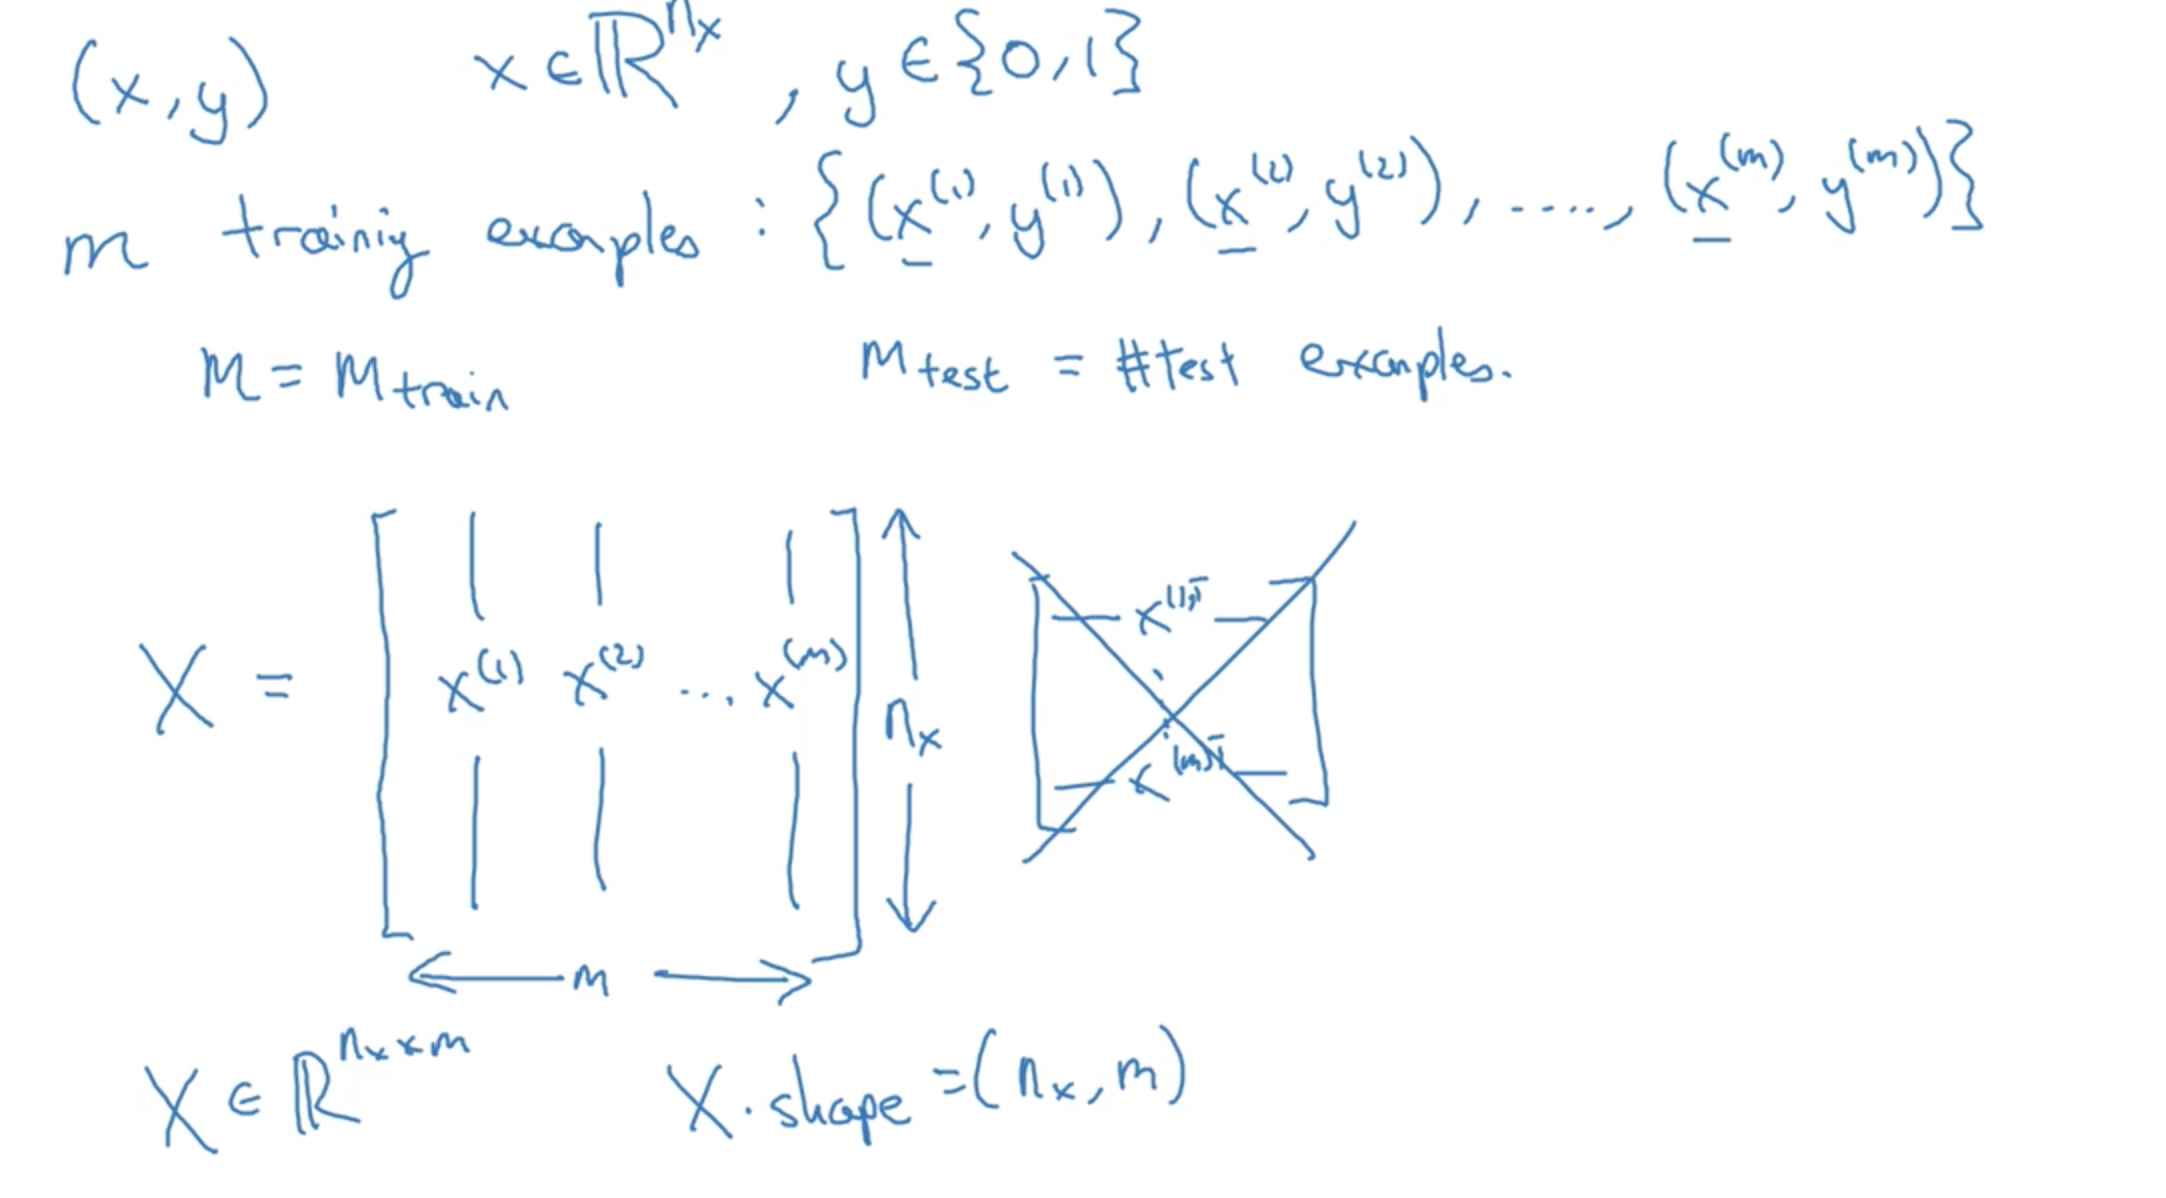 (x,y) x∈ℝ^{n_x}, y∈{0,1}
m training examples : {(x^{(1)}, y^{(1)}), (x^{(2)}, y^{(2)}), ....., (x^{(m)}, y^{(m)})}
M = M_{train} M_{test} = #test examples.
X = [ x^{(1)} x^{(2)} ... x^{(m)} ] n_x
x^{(1)T}
x^{(m)T}
m
X ∈ ℝ^{n_x × m} X.shape = (n_x, m)